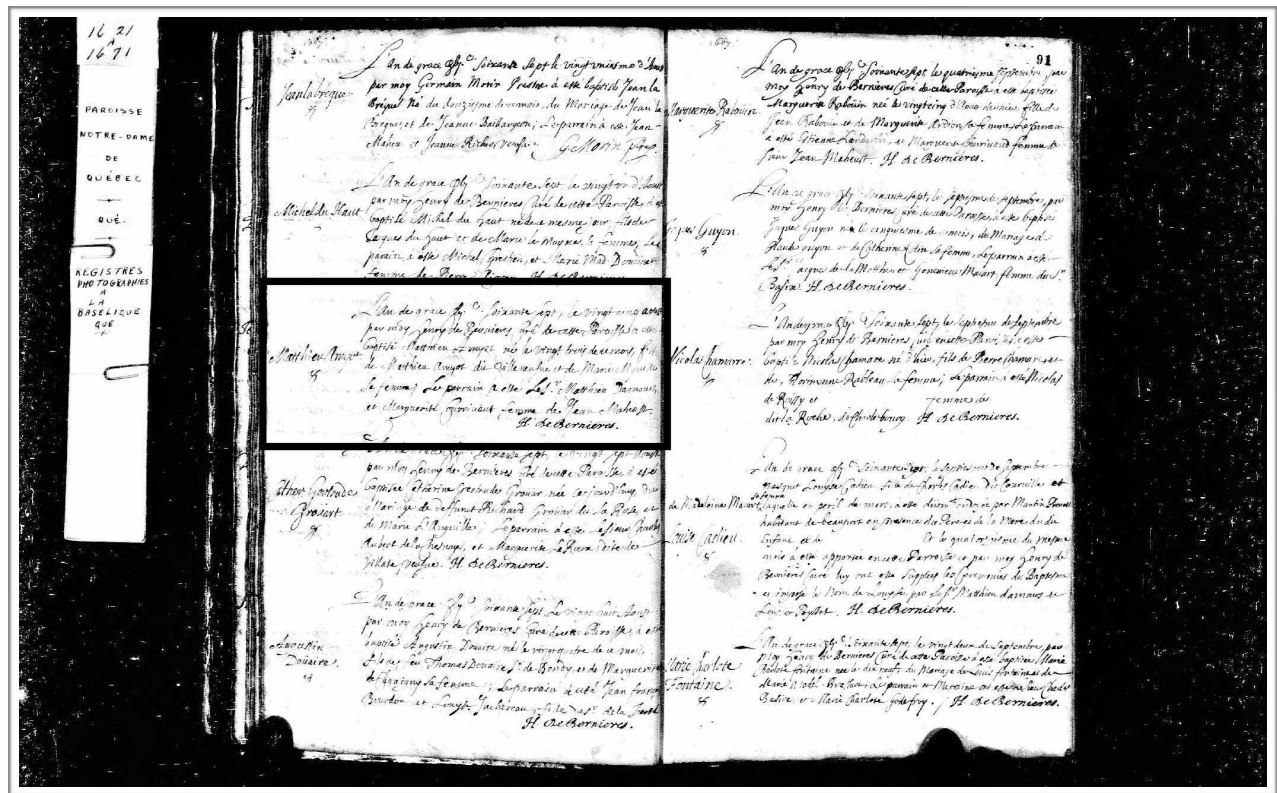 16 21
à
16 71
PAROISSE
NOTRE-DAME
DE
QUÉBEC
QUÉ.
REGISTRES
PHOTOGRAPHIES
A
LA
BASELIQUE
QUE
1667
L'An de grace Soixante Sept le vingtiesme d'Aoust
par moy Germain Morin Prestre a esté baptisé Jean la
Jean la breque
Breque Né du de ce mois, du Mariage de Jean la
et de Jeanne ; Le parrain a esté Jean
Maheu et Jeanne Richer veufve. G. Morin
L'An de grace Soixante Sept, le vingt d'Aoust
par moy Henry de Bernieres Curé de cette Paroisse, a esté
Michel du Haut
baptisé Michel du Haut né du mesme jour fils de
Jaques du Haut et de Marie le Moyne sa femme, Le
parain a esté Michel et Marie Mad. Doucinet
femme de Pierre H. de Bernieres
L'An de grace Soixante sept, le vingt cinq aoust
par moy Henry de Bernieres curé de cette Paroisse a esté
Matthieu Amyot
baptisé Matthieu Amyot né le vingt trois de ce mois, fils
de Mathieu Amyot dit Villeneufve et de Marie Miville
sa femme; Le parrain a esté Le Sr. Matthieu Damours
et Marguerite femme de Jean Maheust.
H. de Bernieres.
Soixante sept, le vingt sept Aoust
par moy Henry de Bernieres curé de cette Paroisse, a esté
Gertrude
baptisée Catherine Gertrudes Grouar née ce jourd'huy, du
Mariage de deffunct Richard Grouar de la Rose et
de Marie L'Anguille; Le parrain a esté le Sieur Charles
Aubert de la Chesnaye, et Marguerite Le Roux dite de
Villate veufve. H. de Bernieres.
L'An de grace Soixante Sept Le vingt huit Aoust
par moy Henry de Bernieres Curé de cette Paroisse, a esté
Augustin
Douaire
baptisé Augustin Douaire né le vingt quatre de ce mois
fils de feu Thomas Douaire Sr. de Bondy et de Marguerite
sa femme; Le parrain a esté Jean françois
Bourdon et Louyse Juchereau, fille du Sr. de la ferté
H. de Bernieres.
1667
91
L'An de grace Soixante sept le quatriesme Septembre, par
moy Henry de Bernieres Curé de cette Paroisse a esté baptisée
Marguerite Rabouin
Marguerite Rabouin née le vingt cinq d'Aoust dernier, fille de
Jean Rabouin et de Marguerite Ardion sa femme, Le Parrain
a esté Estienne et Marguerite femme de
Jean Maheust. H. de Bernieres.
L'An de grace Soixante sept, le septiesme de septembre, par
moy Henry de Bernieres curé de cette Paroisse, a esté baptisé
Jaques Guyon
Jaques Guyon né le cinquiesme de ce mois, du Mariage de
Claude Guyon et de Catherine Colin sa femme, Le parrain a esté
Le Sr. Jacques de la Motthe, et Genevieve Macart femme du Sr.
H. de Bernieres.
L'An de grace Soixante sept, le septiesme de Septembre
par moy Henry de Bernieres curé en cette Paroisse, a esté
Nicolas Chamarre
baptisé Nicolas Chamare né d'hier, fils de Pierre Chamare et
de Florimonne Rableau sa femme; Le parain a esté Nicolas
de Roissy et femme de
dit la Roche, de Charlesbourg H. de Bernieres.
L'An de grace Soixante Sept, le Septiesme de Septembre
nasquit Louyse Cadieu fille de Charles Cadieu dit Courville et
de Madeleine Macart sa femme laquelle en peril de mort, a esté ondoyée par Martin Prevost
habitant de beauport en presence du Pere et de la Mere du du
Louise Cadieu
Enfant et de Et le quatorziesme du mesme
mois a esté apportée en cette Parroisse et par moy Henry de
Bernieres Curé luy ont esté Supplees les Ceremonies du Baptesme
et imposé le Nom de Louyse, par Le Sr. Matthieu d'amours et
H. de Bernieres.
L'An de grace Soixante Sept, le vingt deux de Septembre, par
moy Henry de Bernieres curé de cette Paroisse a esté baptisée Marie
Marie Charlote
Fontaine
Charlote Fontaine née le dix neuf, du Mariage de Louis Fontaine et de
Marie Le parrain et Maraine ont esté Charles
Basire et Marie Charlote Godefroy. H. de Bernieres.